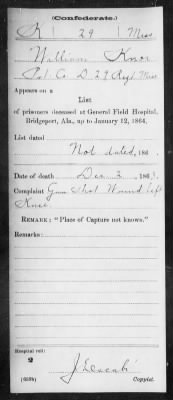 (Confederate.)
K 29 Miss
William Knox
Pvt Co D. 29 Regt Miss
Appears on a
List
of prisoners deceased at General Field Hospital,
Bridgeport, Ala., up to January 12, 1864.
List dated
Not dated, 186 .
Date of death Dec 3, 186 .
Complaint Gun Shot Wound Left
Knee
REMARK: "Place of Capture not known."
Remarks:
Hospital roll:
2
Copyist.